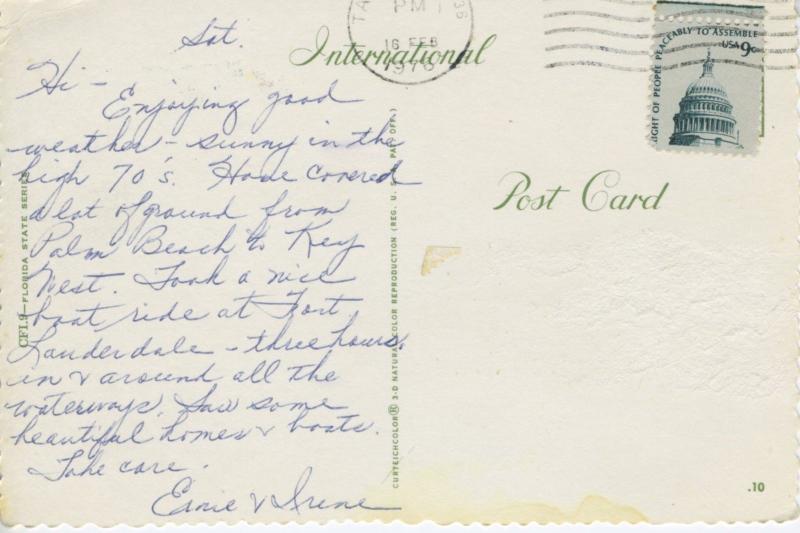 Sat.
Hi -
Enjoying good
weather - sunny in the
high 70's. Have covered
a lot of ground from
Palm Beach to Key
West. Took a nice
boat ride at Fort
Lauderdale - three hours,
in & around all the
waterways. Saw some
beautiful homes & boats.
Take care.
Ernie & Irene
CFL9—FLORIDA STATE SERIES
CURTEICHCOLOR® 3-D NATURAL COLOR REPRODUCTION (REG. U. S. A. PAT. OFF.)
International
Post Card
TA
336
PM
16 FEB
1976
RIGHT OF PEOPLE PEACEABLY TO ASSEMBLE
USA 9c
.10